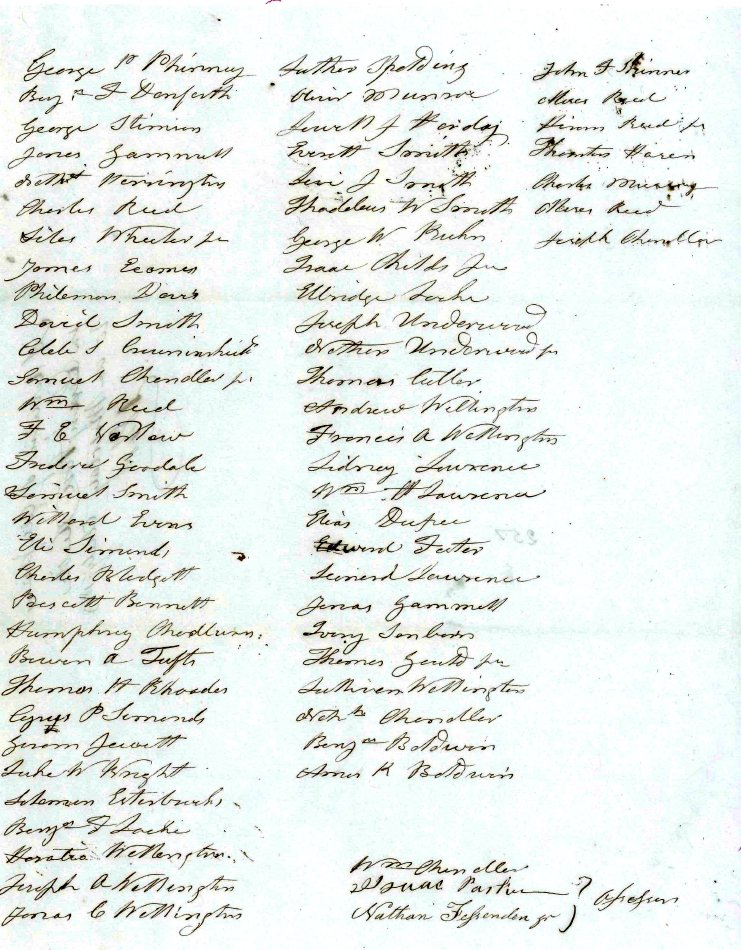 George P Phinney
Benjn F Danforth
George Stimson
Jonas Gammell
Nathl Harrington
Charles Reed
Silas Wheeler jr
James Eames
Philemon Davis
David Smith
Caleb S
Samuel Chandler jr
Wm Reed
F E
Frederic Goodale
Samuel Smith
Willard Evens
Eli Simonds
Charles Blodgett
Prescott Bennett
Humphrey
Bowen A Tufts
Thomas H Rhoades
Cyrus P Simonds
Jewett
Luke W Wright
Solomon Esterbrooks
Benjn F Locke
Horatio Wellington
Joseph A Wellington
Jonas C Wellington
Luther Spalding
Oliver Munroe
J
Everett Smith
Levi J Smith
Thaddeus W Smith
George W Kuhn
Isaac Childs Jr
Elbridge Locke
Joseph Underwood
Nathan Underwood jr
Thomas Cutler
Andrew Wellington
Francis A Wellington
Sidney Lawrence
Wm H Lawrence
Elias Dupee
Edward Foster
Leonard Lawrence
Jonas Gammell
Ivory Sanborn
Thomas Gould jr
Sullivan Wellington
Chandler
Benjn Baldwin
Amos K Baldwin
John F Skinner
Reed
Hiram Reed jr
Charles
Reed
Joseph Chandler
Wm Chandler
Isaac Parker
Nathan Fessenden jr
Assessors